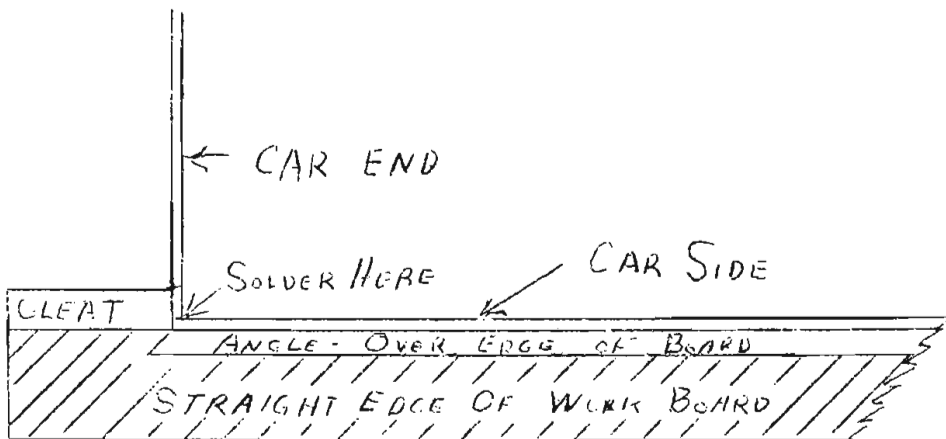 CAR END
SOLDER HERE
CAR SIDE
CLEAT
ANGLE - OVER EDGE OF BOARD
STRAIGHT EDGE OF WORK BOARD